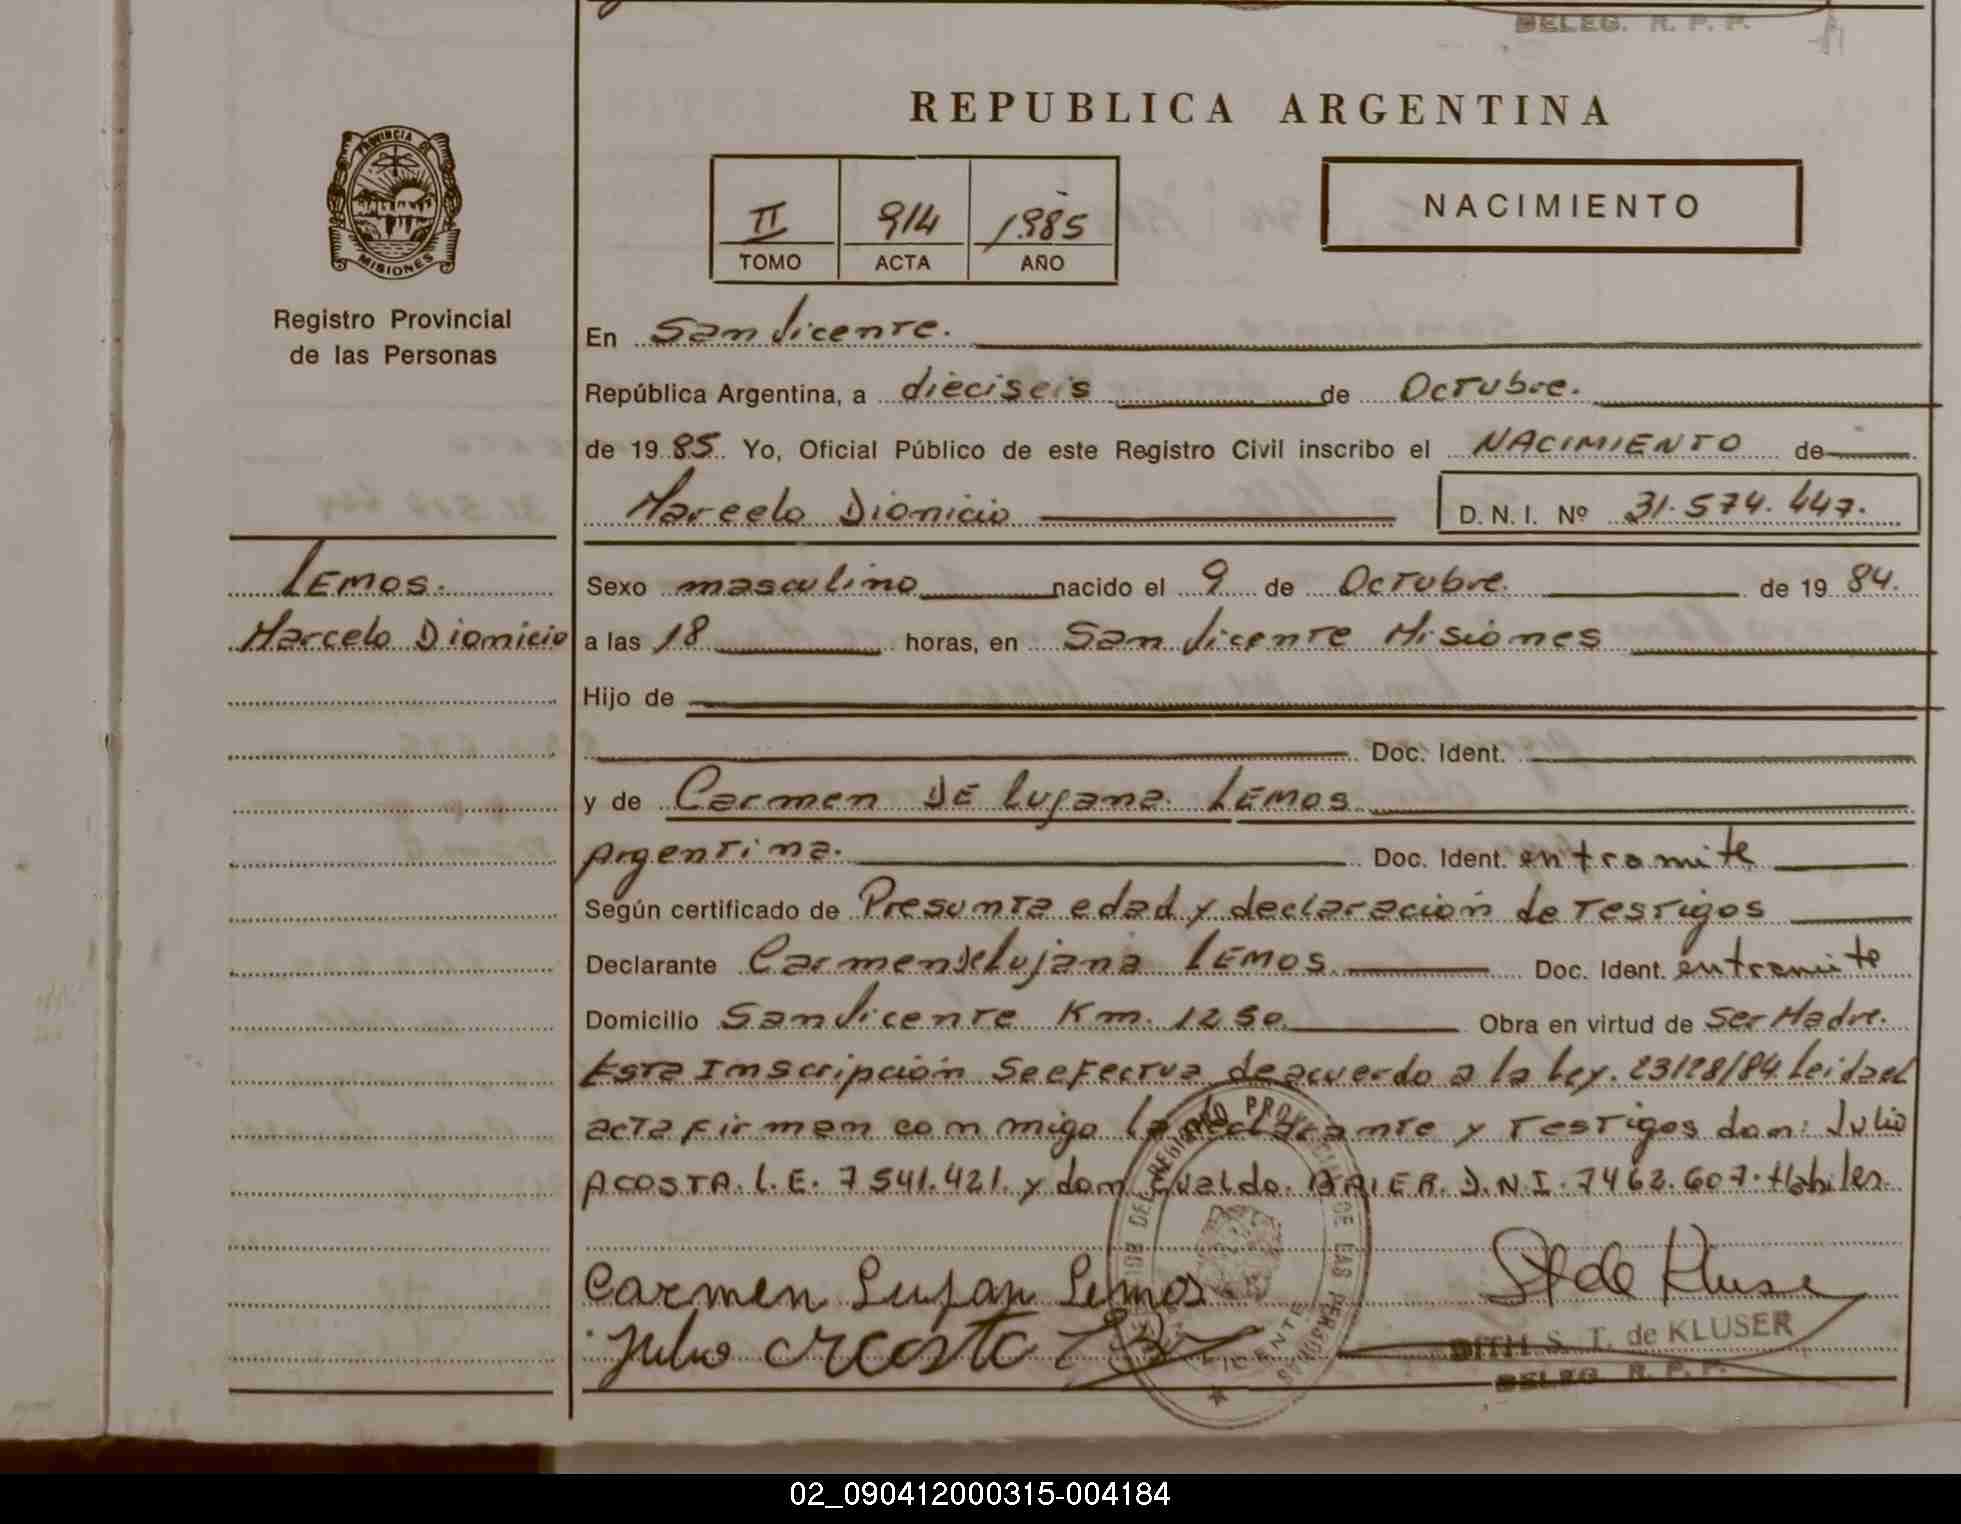 DELEG. R. P. P.
REPUBLICA ARGENTINA
PROVINCIA DE
MISIONES
II 914 1985
TOMO ACTA AÑO
NACIMIENTO
Registro Provincial
de las Personas
En San Vicente.
República Argentina, a dieciseis de Octubre.
de 1985. Yo, Oficial Público de este Registro Civil inscribo el NACIMIENTO de
Marcelo Dionicio D. N. I. Nº 31.574.447.
LEMOS.
Marcelo Dionicio
Sexo masculino nacido el 9 de Octubre. de 1984.
a las 18 horas, en San Vicente Misiones
Hijo de
Doc. Ident.
y de Carmen DE lujana LEMOS
Argentina. Doc. Ident. entramite
Según certificado de Presunta edad y declaración de Testigos
Declarante Carmen de lujana LEMOS Doc. Ident. entramite
Domicilio San Vicente Km. 1250 Obra en virtud de Ser Madre.
Esta Inscripción se efectua de acuerdo a la ley. 23128/84 leida el
acta firman con migo la declarante y Testigos don: Julio
ACOSTA. L.E. 7541.421. y don Evaldo. BAIER. D.N.I. 7462.607. Habiles.
Carmen Lujan Lemos
Julio Acosta
St de Kluser
DITH S. T. de KLUSER
DELEG. R. P. P.
02_090412000315-004184